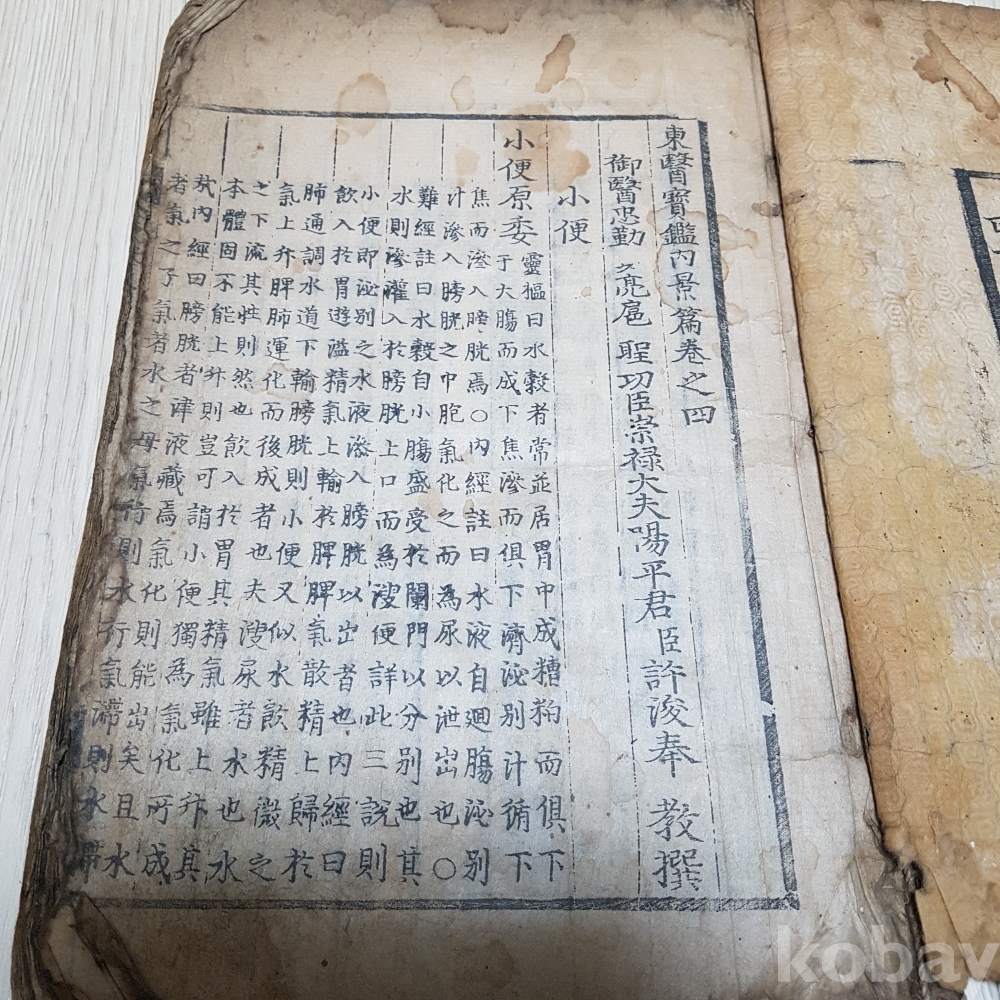 東醫寶鑑內景篇卷之四
御醫忠勤亮扈 聖功臣崇祿大夫陽平君臣許浚奉 教撰
小便
小便原委 靈樞曰水穀者常並居胃中成糟粕而俱下
于大腸而成下焦滲而俱下濟泌別汁循下
焦而滲入膀胱焉○內經註曰水液自迴腸泌別
汁滲入膀胱之中胞氣化之而為尿以泄出也○
難經註曰水穀自小腸盛受於闌門以分別也其
水則滲灌入於膀胱上口而為溲便詳此三說則
小便即泌別之水液滲入膀胱以出者也內經曰
飲入於胃遊溢精氣上輸於脾脾氣散精上歸於
肺通調水道下輸膀胱則小便又似水飲精微之
氣上升脾肺運化而後成者也夫溲尿者水也水
之下流其性則然也飲入於胃其精氣雖上升其
本體固不能上升則豈可謂小便獨為氣化所成
哉內經曰膀胱者津液藏焉氣化則能出矣且水
者氣之子氣者水之母氣行則水行氣滯則水滯
kobay